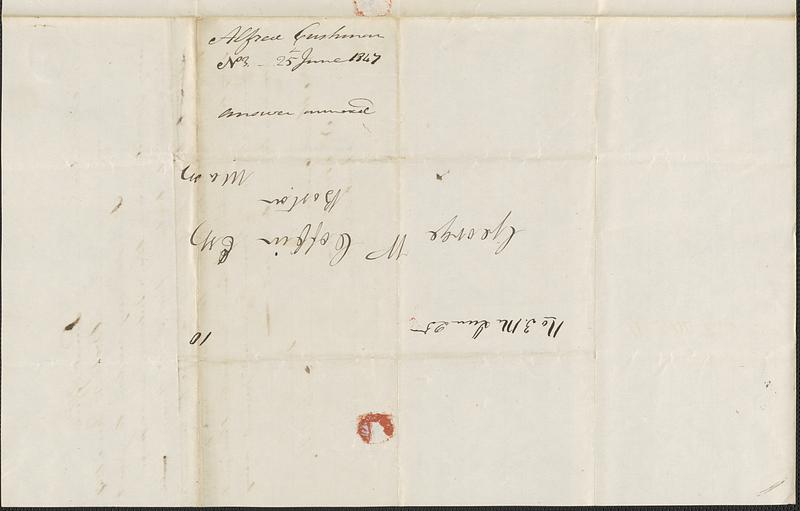 Alfred Cushman
No 3 - 25 June 1847
answer annexed
No 3. Me June 25
10
George W Coffin Esq
Boston
Mass